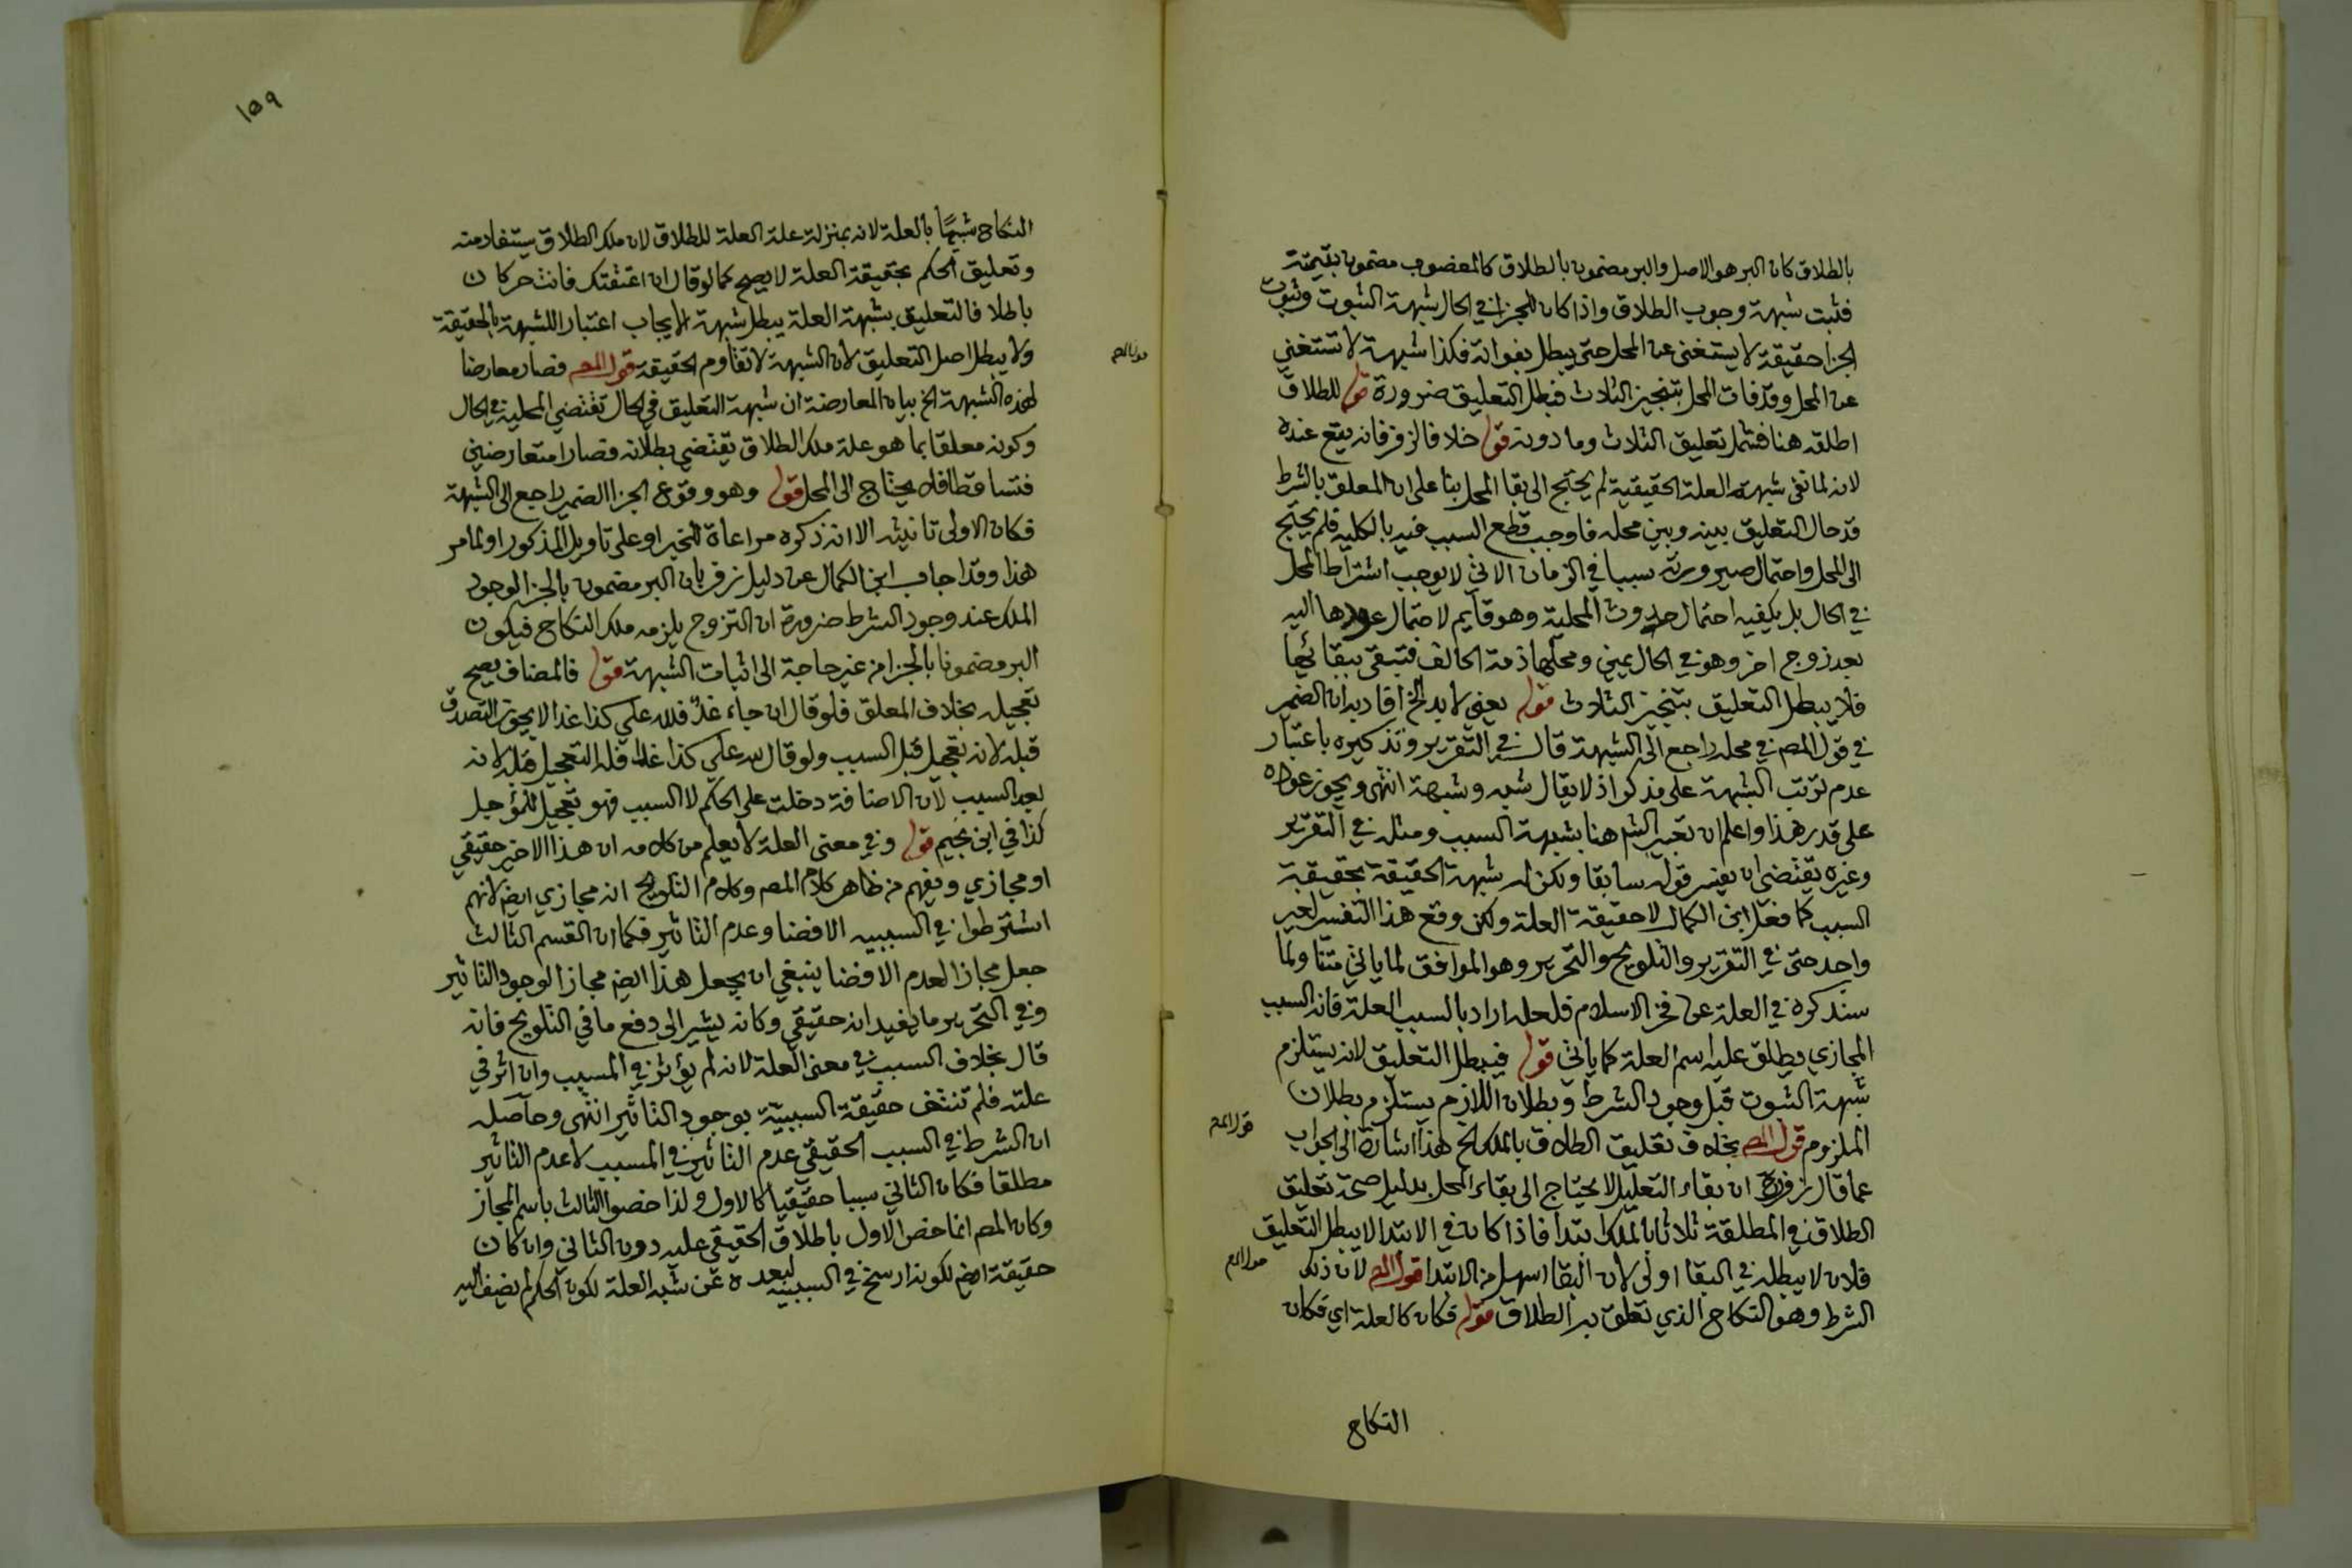 بالطلاق كان البر هو الاصل والبر مضمون بالطلاق كالمغصوب مضمون بقيمته
فثبت شبهة وجوب الطلاق واذا كان للجزا في الحال شبهة الثبوت وثبوت
الجزا حقيقة لا يستغنى عن المحل حتى يبطل بفواته فكذا شبهة لا تستغني
عن المحل وقد فات المحل بتنجيز الثلاث فبطل التعليق ضرورة قوله للطلاق
اطلقه هنا فشمل تعليق الثلاث وما دونه قوله خلافا لزفر فانه يقع عنده
لانه لما نفى شبهة العلة الحقيقية لم يحتج الى بقا المحل بنا على ان المعلق بالشرط
قد حال التعليق بينه وبين محله فاوجب قطع السبب فيه بالكلية فلم يحتج
الى المحل واحتمال صيرورته سببا في الزمان الاتي لا يوجب اشتراط المحل
في الحال بل يكفيه احتمال حدوث المحلية وهو قايم لاحتمال عودها اليه
بعد زوج اخر وهو في الحال يمين ومحلها ذمة الحالف فتبقى ببقائها
فلا يبطل التعليق بتنجيز الثلاث قوله يعني لا بد الخ افاد به ان الضمير
في قول المصـ في محله راجع الى الشبهة قال في التقرير وتذكيره باعتبار
عدم ترتب الشبهة على مذكر اذ لا يقال شبه وشبهة انتهى ويجوز عوده
على قدر هذا واعلم ان تعبير الشـ هنا بشبهة السبب ومثله في التقرير
وغيره يقتضي ان يفسر قوله سابقا ولكن له شبهة الحقيقة بحقيقة
السبب كما فعل ابن الكمال لا حقيقة العلة ولكن وقع هذا التفسير لغير
واحد حتى في التقرير والتلويح والتحرير وهو الموافق لما ياتي متنا ولما
سنذكره في العلة عن فخر الاسلام فلعله اراد بالسبب العلة فانه السبب
المجازي ويطلق عليه اسم العلة كما ياتي قوله فيبطل التعليق لانه يستلزم
شبهة الثبوت قبل وجود الشرط وبطلان اللازم يستلزم بطلان
الملزوم قول المصـ بخلاف تعليق الطلاق بالملك الخ هذا اشارة الى الجواب
عما قال زفر ان بقاء التعليل لا يحتاج الى بقاء المحل بدليل صحة تعليق
الطلاق في المطلقة ثلاثا بالملك ابتدا فاذا كان في الابتدا لا يبطل التعليق
فلان لا يبطله في البقا اولى لان البقا اسهل من الابتدا قول المصـ لان ذلك
الشرط وهو النكاح الذي تعلق به الطلاق قوله فكان كالعلة اي فكان
النكاح
١٥٩
النكاح شبيها بالعلة لانه بمنزلة علة العلة للطلاق لان ملك الطلاق يستفاد منه
وتعليق الحكم بحقيقة العلة لا يصح كما لو قال ان اعتقتك فانت حر كان
باطلا فالتعليق بشبهة العلة يبطل شبهة الايجاب اعتبارا للشبهة بالحقيقة
ولا يبطل اصل التعليق لان الشبهة لا تقاوم الحقيقة قول المصـ فصار معارضا
لهذه الشبهة الخ بيان المعارضة ان شبهة التعليق في الحال تقتضي المحلية في الحال
وكونه معلقا بما هو علة ملك الطلاق يقتضي بطلانه فصارا متعارضين
فتساقطا فلا يحتاج الى المحل قوله وهو وقوع الجزا الضمير راجع الى الشبهة
فكان الاولى تانيثه الا انه ذكره مراعاة للخبر او على تاويل المذكور او لما مر
هذا وقد اجاب ابن الكمال عن دليل زفر بان البر مضمون بالجزا لوجود
الملك عند وجود الشرط ضرورة ان التزوج يلزمه ملك النكاح فيكون
البر مضمونا بالجزا من غير حاجة الى اثبات الشبهة قوله فالمضاف يصح
تعجيله بخلاف المعلق فلو قال ان جاء غدٌ فلله علي كذا غدا لا يجوز التصدق
قبله لانه تعجيل قبل السبب ولو قال لله علي كذا غدا فله التعجيل قبله لانه
بعد السبب لان الاضافة دخلت على الحكم لا السبب فهو تعجيل للمؤجل
كذا في ابن نجيم قوله وفي معنى العلة لا يعلم من كلامه ان هذا الاخير حقيقي
او مجازي ويفهم من ظاهر كلام المصـ وكلام التلويح انه مجازي ايضـ لانهم
اشترطوا في السببيه الافضا وعدم التاثير فكما ان القسم الثالث
جعل مجازا لعدم الافضا ينبغي ان يجعل هذا ايضـ مجازا لوجود التاثير
وفي التحرير ما يفيد انه حقيقي وكانه يشير الى دفع ما في التلويح فانه
قال بخلاف السبب في معنى العلة لانه لم يؤثر في المسبب وان اثر في
علته فلم تنتف حقيقة السببية بوجود التاثير انتهى وحاصله
ان الشرط في السبب الحقيقي عدم التاثير في المسبب لا عدم التاثير
مطلقا فكان الثاني سببا حقيقيا كالاول ولذا خصوا الثالث باسم المجاز
وكان المصـ انما خص الاول باطلاق الحقيقي عليه دون الثاني وان كان
حقيقة ايضـ لكونه ارسخ في السببية لبعده عن شبه العلة لكون الحكم لم يضف اليه